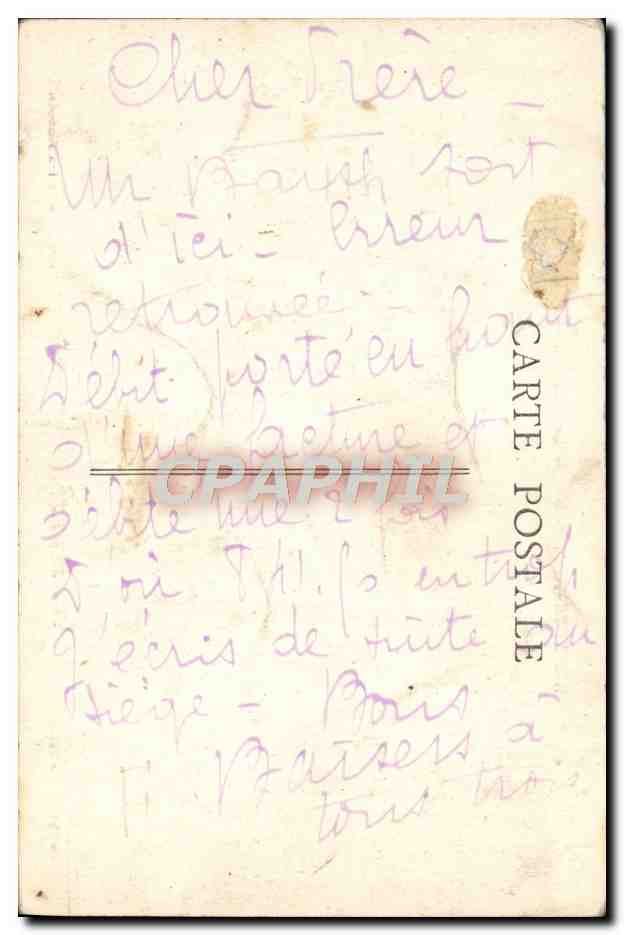 Cher Frère
Un sort
d'ici - Erreur
retrouvée -
Débit porté en haut
d'une facture et
débité une 2 fois
D'où en trop.
J'écris de suite au
Siège - Bons
Baisers à
tous trois
CARTE POSTALE
CPAPHIL